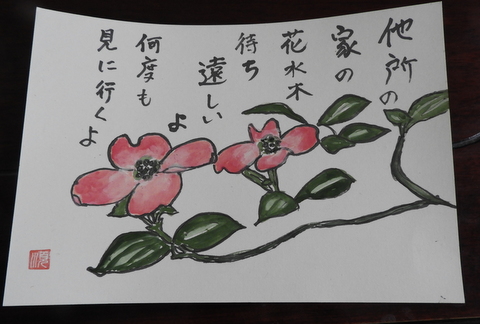 他所の
家の
花水木
待ち
遠しい
よ
何度も
見に行くよ